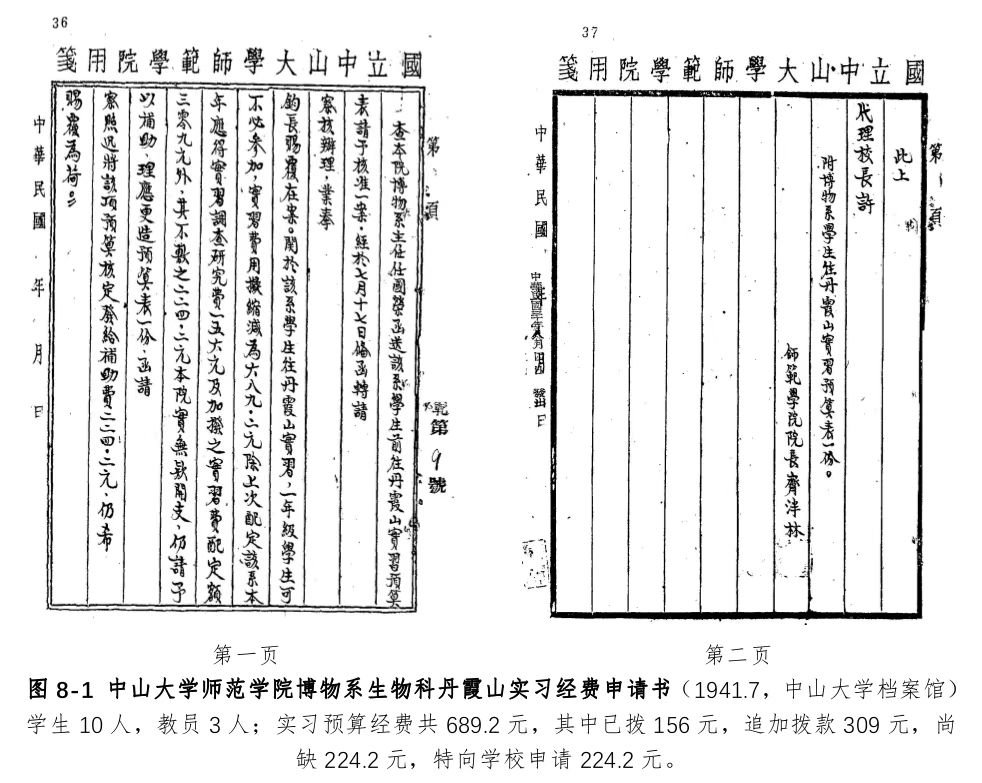 36
國立中山大學師範學院用箋
第 頁
範第9號
查本院博物系主任任國榮函送該系學生前往丹霞山實習預算
表請予核准一案，經於七月十七日備函轉請
察核辦理，業奉
鈞長賜覆在案。關於該系學生往丹霞山實習，一年級學生可
不必參加，實習費用擬縮減為六八九·二元除上次配定該系本
年應得實習調查研究費一五六元及加撥之實習費配定額
三零九元外，其不敷之二二四·二元本院實無款開支，仍請予
以補助，理應更造預算表一份，函請
察照迅將該項預算核定發給補助費二二四·二元，仍希
賜覆為荷。
中華民國 年 月 日
37
國立中山大學師範學院用箋
第 頁
此上
代理校長許
附博物系學生往丹霞山實習預算表一份。
師範學院院長齊泮林
中華民國
日
第一页
第二页
图 8-1 中山大学师范学院博物系生物科丹霞山实习经费申请书（1941.7，中山大学档案馆）
学生 10 人，教员 3 人；实习预算经费共 689.2 元，其中已拨 156 元，追加拨款 309 元，尚
缺 224.2 元，特向学校申请 224.2 元。